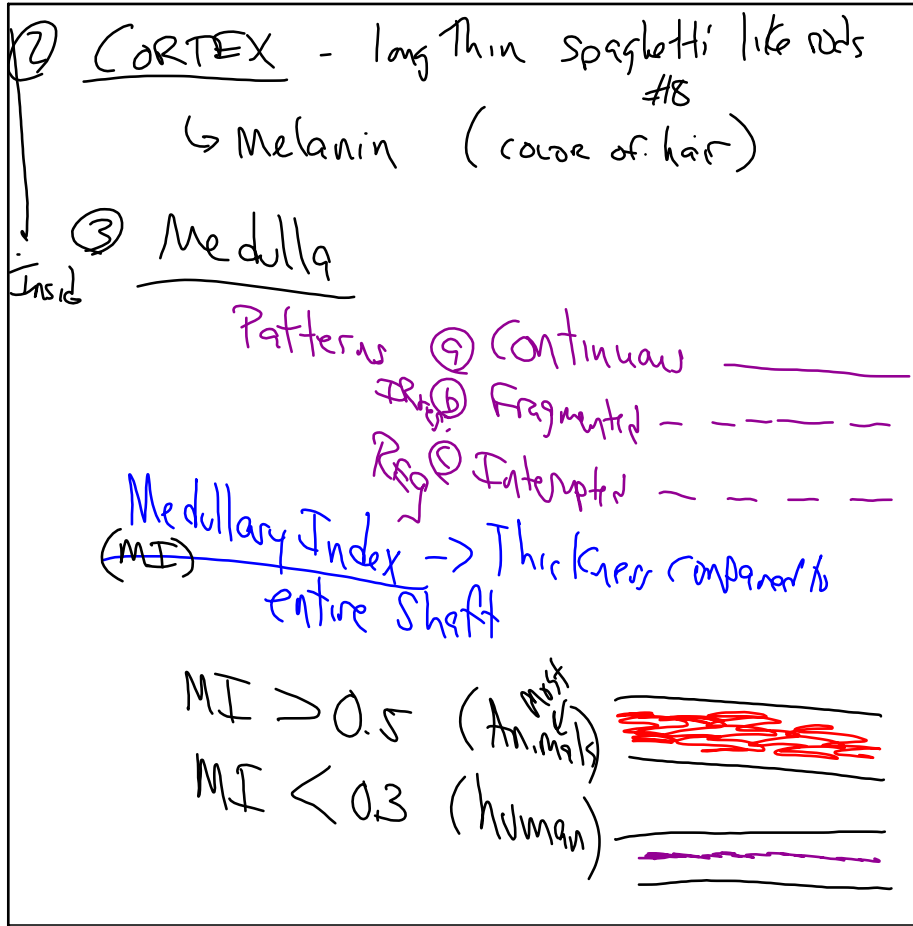 ② CORTEX - long Thin spaghetti like rods
#8
↳ Melanin (color of hair)
③ Medulla
Insid
Patterns ⓐ Continuous
IRreg ⓑ Fragmented
Reg ⓒ Interupted
Medullary Index -> Thickness compared to
(MI)
entire Shaft
most
MI > 0.5 (Animals)
MI < 0.3 (human)